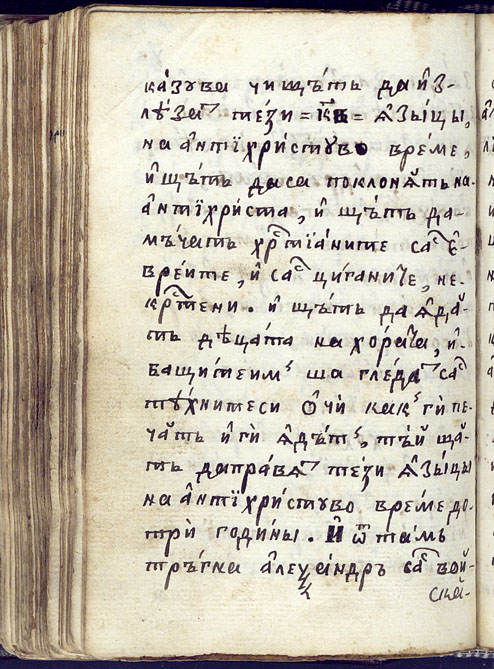 ка́зува чи щѣ́ть да и҆з-
лѣ́затъ те́зи = к҃в = ѧ҆зы́цы,
на а҆нтїхри́стуво вре́ме,
и҆ щѣ́ть даса поклонѧ́ть на-
а҆нтїхри́ста, и҆ щѣ́ть да-
мъ́чать хрⷭ҇тїа́ните саⷭ҇ е҆-
вре́ите, и҆ саⷭ҇ циганиче, не-
крⷭ҇тени. и҆ щѣ́ть да ѧ҆да́-
ть дѣца́та на хо́рата, и҆-
бащи́теим ша гле́датъ саⷭ҇
тѣ́хнитеси ѻ҆чѝ какъ гѝ пе-
ча́ть и҆ гѝ ѧ҆дѣ́ть, тъ́й ща-
ть дапра́вѧтъ те́зи ѧ҆зы́цы
на а҆нтїхри́стуво вре́ме до-
трѝ годи́ны. И҆ ѿ та́мь
тръ́гна а҆леѯа́ндръ саⷭ҇ вой-
ска́-